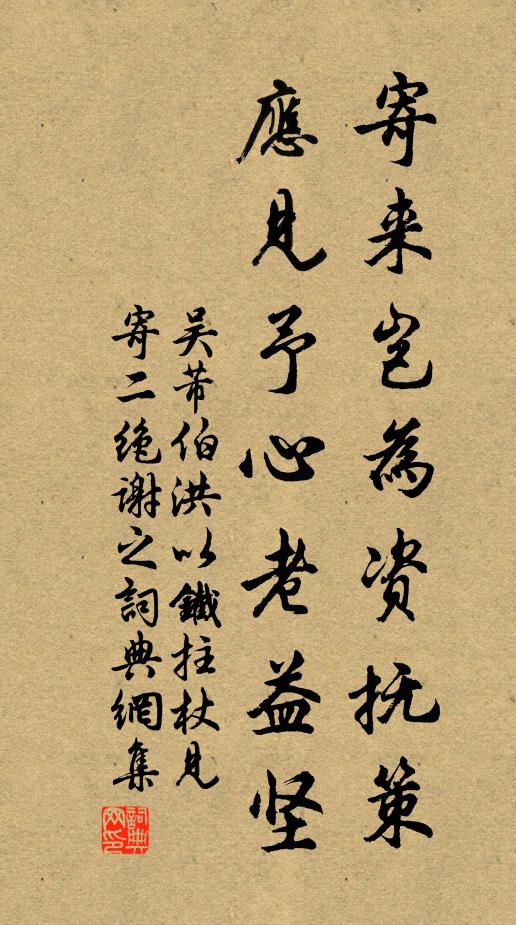 寄来岂为资抚策
應見予心老益坚
吴芾伯洪以鐵拄杖見
寄二絶謝之詞典網集
詞典网印